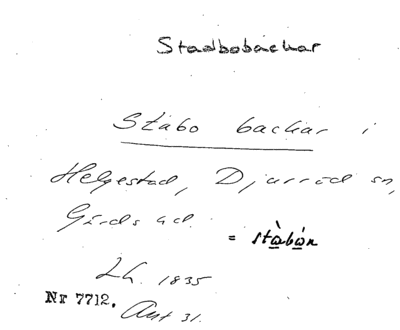 Stadbobackar
Stabo backar i
Helgestad, Djurröd sn,
Gärds hd.
= stàbȯn
Lh. 1835
Nr 7712. Akt 31.